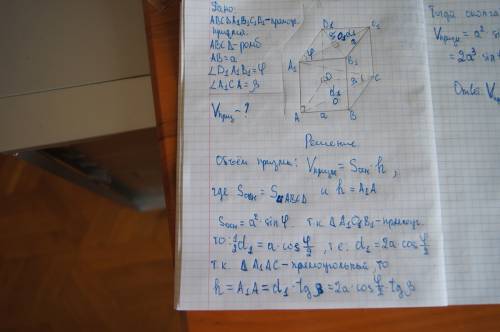 Дано:
ABCDA₁B₁C₁D₁-прямоуг.
призма.
ABCD-ромб
AB=a
∠D₁A₁B₁=φ
∠A₁CA=β
Vприз-?
D₁
C₁
A₁
φ
B₁
D
C
β
d₁
O
A
a
B
Решение
Объём призмы: Vпризм=Sосн·h,
где Sосн=S ABCD и h=A₁A
Sосн=a²·sinφ т.к. ΔA₁O₁B₁-прямоуг.
то: ½d₁=a·cos φ/2, т.е. d₁=2a cos φ/2
т.к. ΔA₁AC-прямоугольный, то
h=A₁A=d₁·tgβ=2a·cos φ/2·tgβ
Тогда
Vприз=a² sin
=2a³ sin
Ответ: